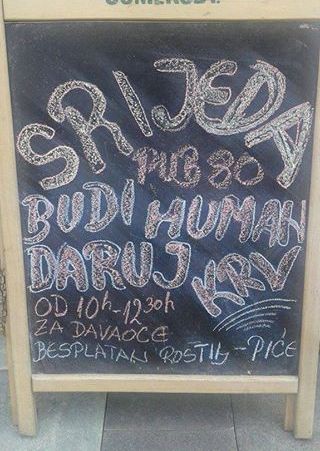 SRIJEDA
PUB 80
BUDI HUMAN
DARUJ KRV
OD 10h-1230h
ZA DAVAOCE
BESPLATAN ROŠTILJ - PIĆE